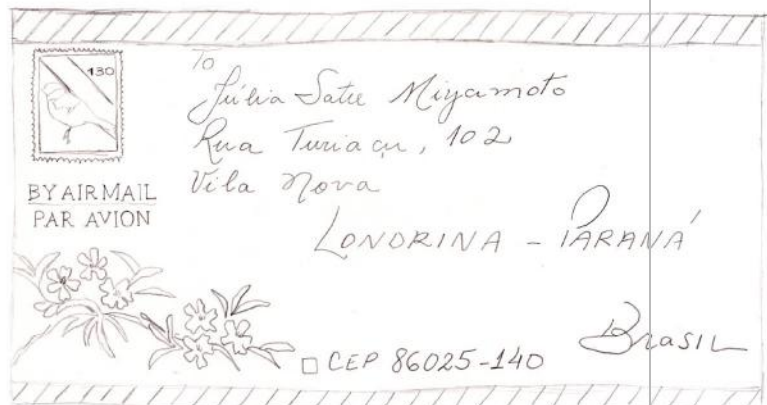 130
BY AIR MAIL
PAR AVION
To
Júlia Satie Miyamoto
Rua Turiaçu, 102
Vila Nova
LONDRINA - PARANÁ
Brasil
CEP 86025-140